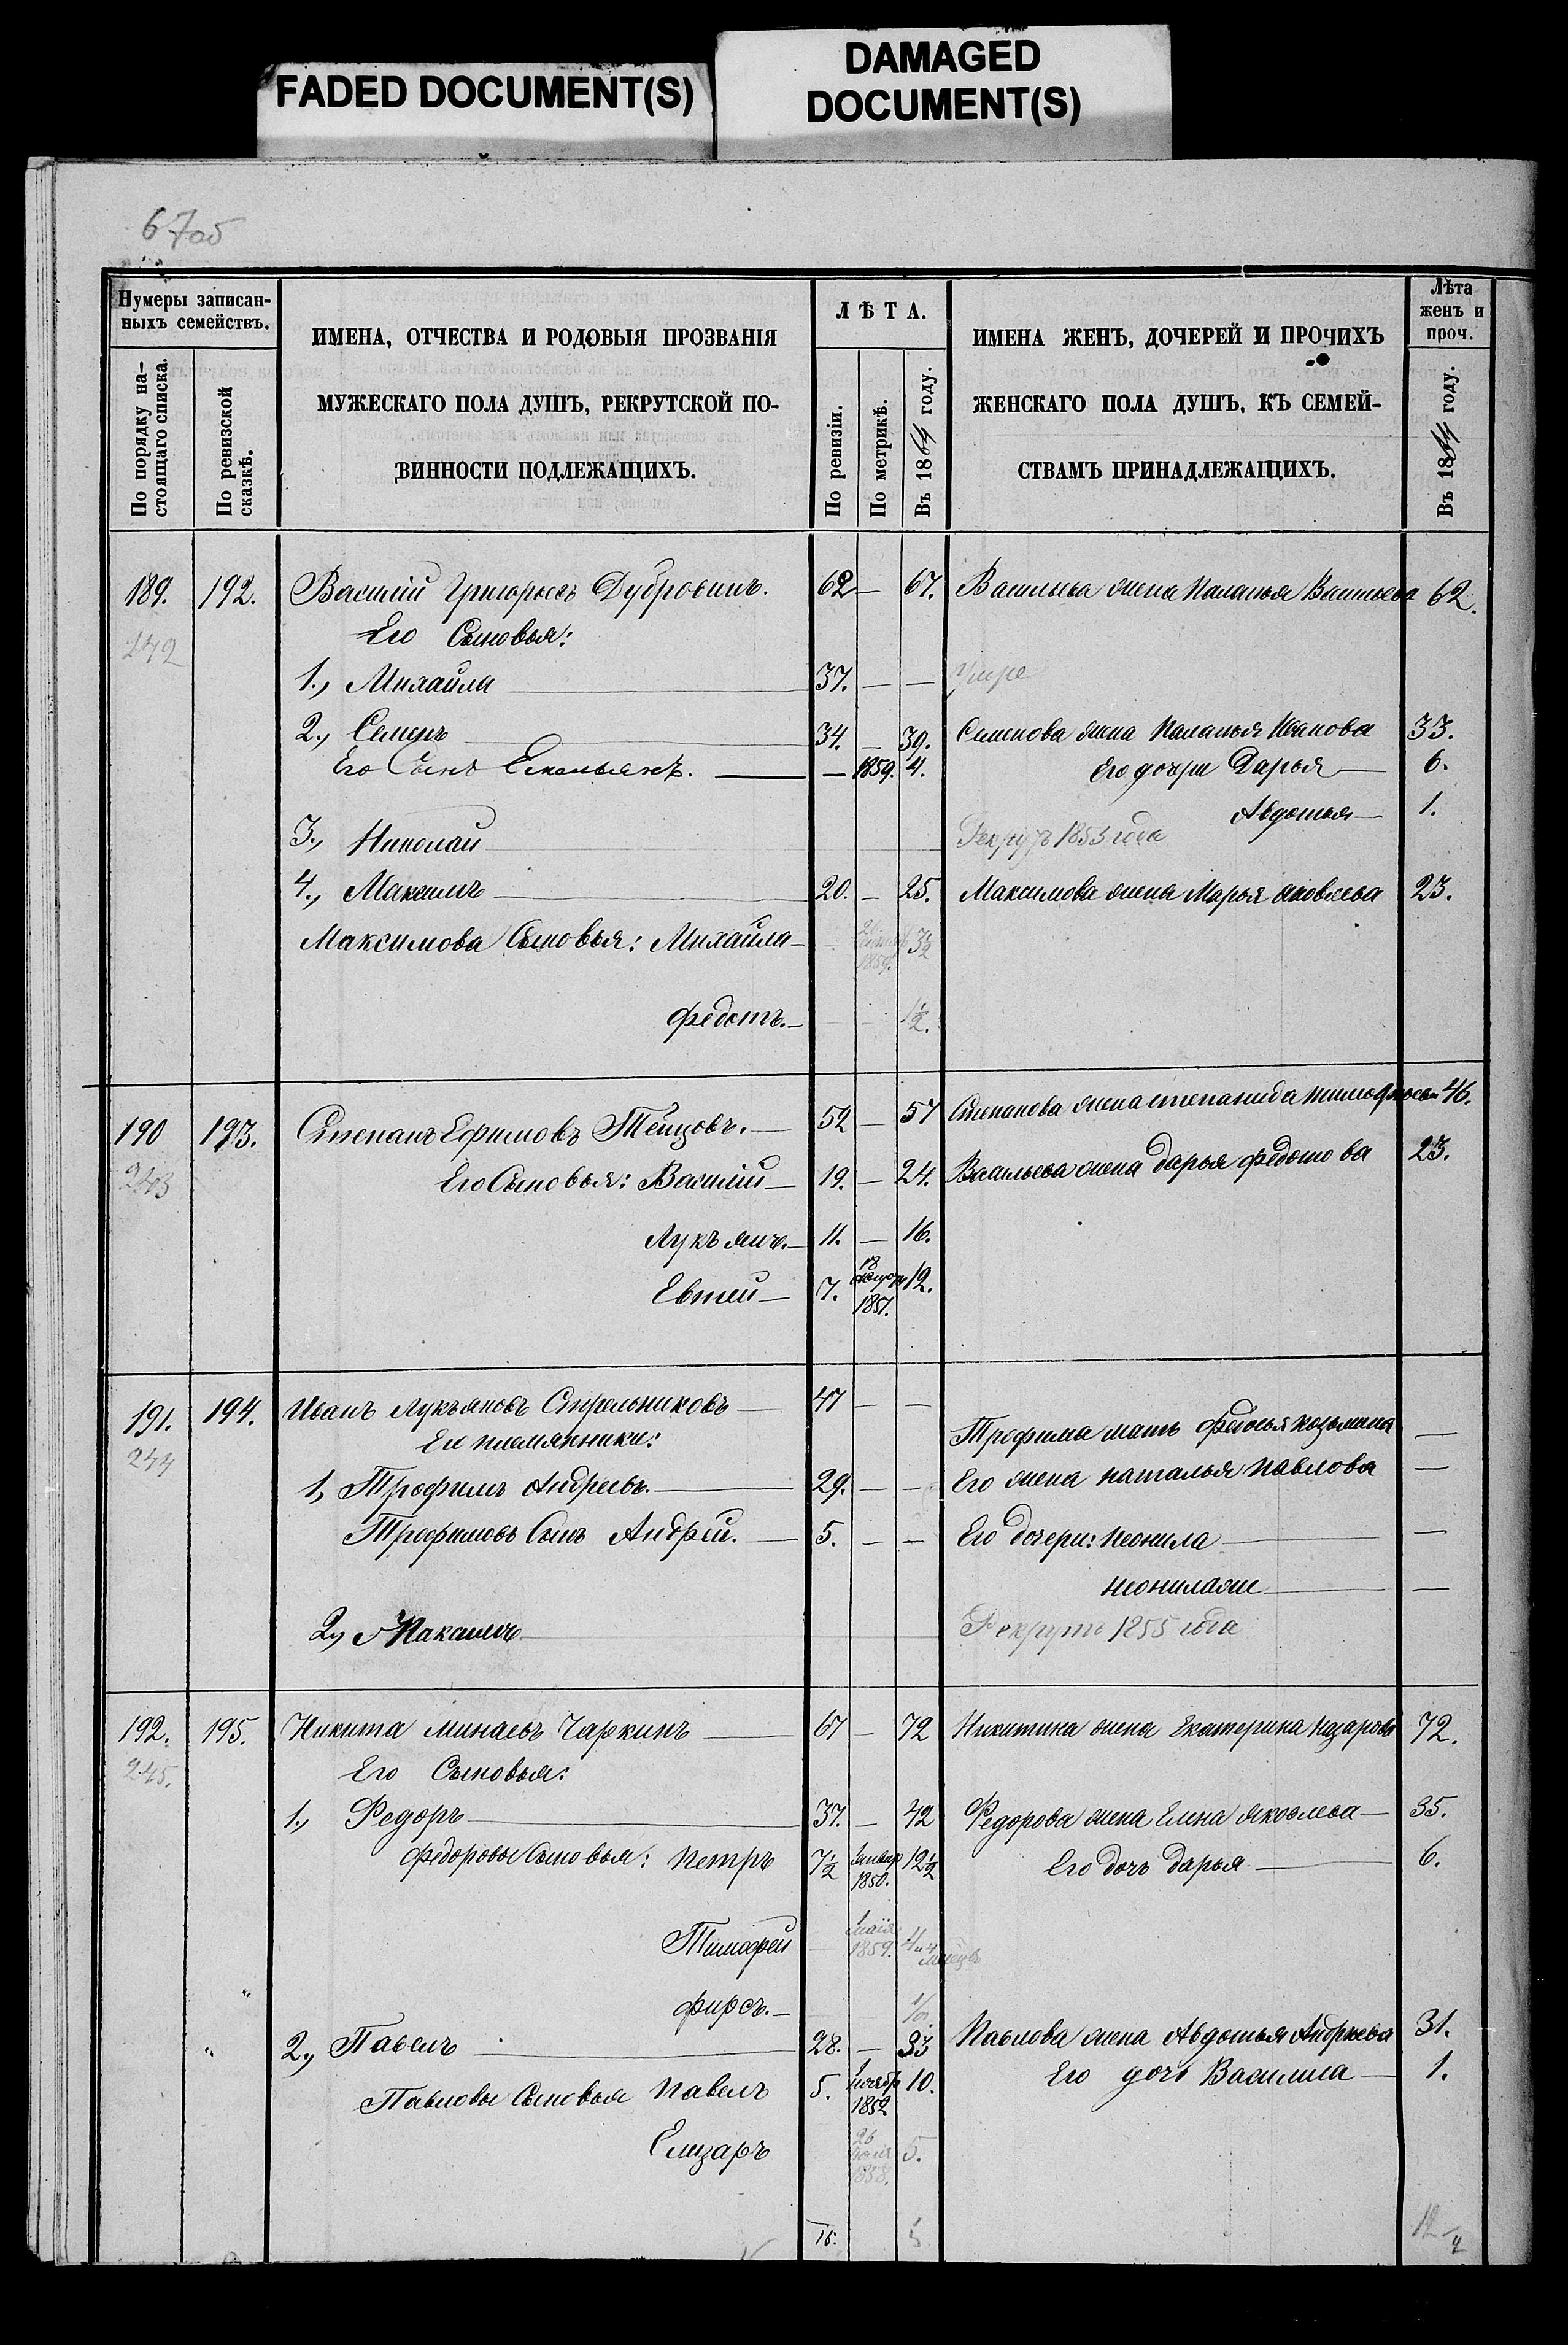 FADED DOCUMENT(S)
DAMAGED
DOCUMENT(S)
67об
Нумеры записан-
ныхъ семействъ.
По порядку на-
стоящаго списка.
По ревизской
сказкѣ.
ИМЕНА, ОТЧЕСТВА И РОДОВЫЯ ПРОЗВАНІЯ
МУЖЕСКАГО ПОЛА ДУШЪ, РЕКРУТСКОЙ ПО-
ВИННОСТИ ПОДЛЕЖАЩИХЪ.
ЛѢТА.
По ревизіи.
По метрикѣ.
Въ 1864 году.
ИМЕНА ЖЕНЪ, ДОЧЕРЕЙ И ПРОЧИХЪ
ЖЕНСКАГО ПОЛА ДУШЪ, КЪ СЕМЕЙ-
СТВАМЪ ПРИНАДЛЕЖАЩИХЪ.
Лѣта
женъ и
проч.
Въ 1864 году.
189. 192. Василій Григорьевъ Дубровинъ. 62 — 67. Васильева жена Паланья Васильева 62.
242 Его Сыновья:
1., Михайла 37. — — Умре
2., Семенъ 34. — 39. Семенова жена Паланья Иванова 33.
Его Сынъ Емельянъ. — 1859. 4. Его дочри Дарья — 6.
Авдотья — 1.
3., Николай Рекрутъ 1853 года
4., Максимъ 20. — 25. Максимова жена Марья Яковлева 23.
Максимова Сыновья: Михайла — 1859. 3½
Федотъ. — 1½.
190 193. Степанъ Ефимовъ Тепцовъ. — 52 — 57 Степанова жена степанида тимофѣева 46.
243 Его Сыновья: Василій — 19. — 24. Васильева жена дарья федотова 23.
Лукъянъ. — 11. — 16.
Евтей — 7. 18 Август 1851. 12.
191. 194. Иванъ Лукъяновъ Стрельниковъ — 47 — —
244 Его племянники: Трофима мать Федосья козьмина —
1, Трофимъ Андреевъ. 29. — — Его жена наталья Павлова —
Трофимовъ Сынъ Андрей. — 5. — — Его дочери: Неонила —
неонилаже —
2, Максимъ Рекрутъ 1855 года
192. 195. Никита Минаевъ Чаркинъ 67 — 72 Никитина жена Екатерина Назарова 72.
245. Его Сыновья:
1., Федоръ 37. — 42 Федорова жена Елена Яковлева — 35.
Федоровы Сыновья: Петръ 7½ Январ 1850. 12½ Его дочь дарья — 6.
Тимофей — 1 маія 1859. 4 и 4 месецъ
фирсъ. —
2., Павелъ 28. — 33 Павлова жена Авдотья Андреева 31.
Павловы Сыновья Павелъ 5. 1 ноябр 1852 10. Его дочь Василиса — 1.
Елизаръ 26 1858. 5.
16.